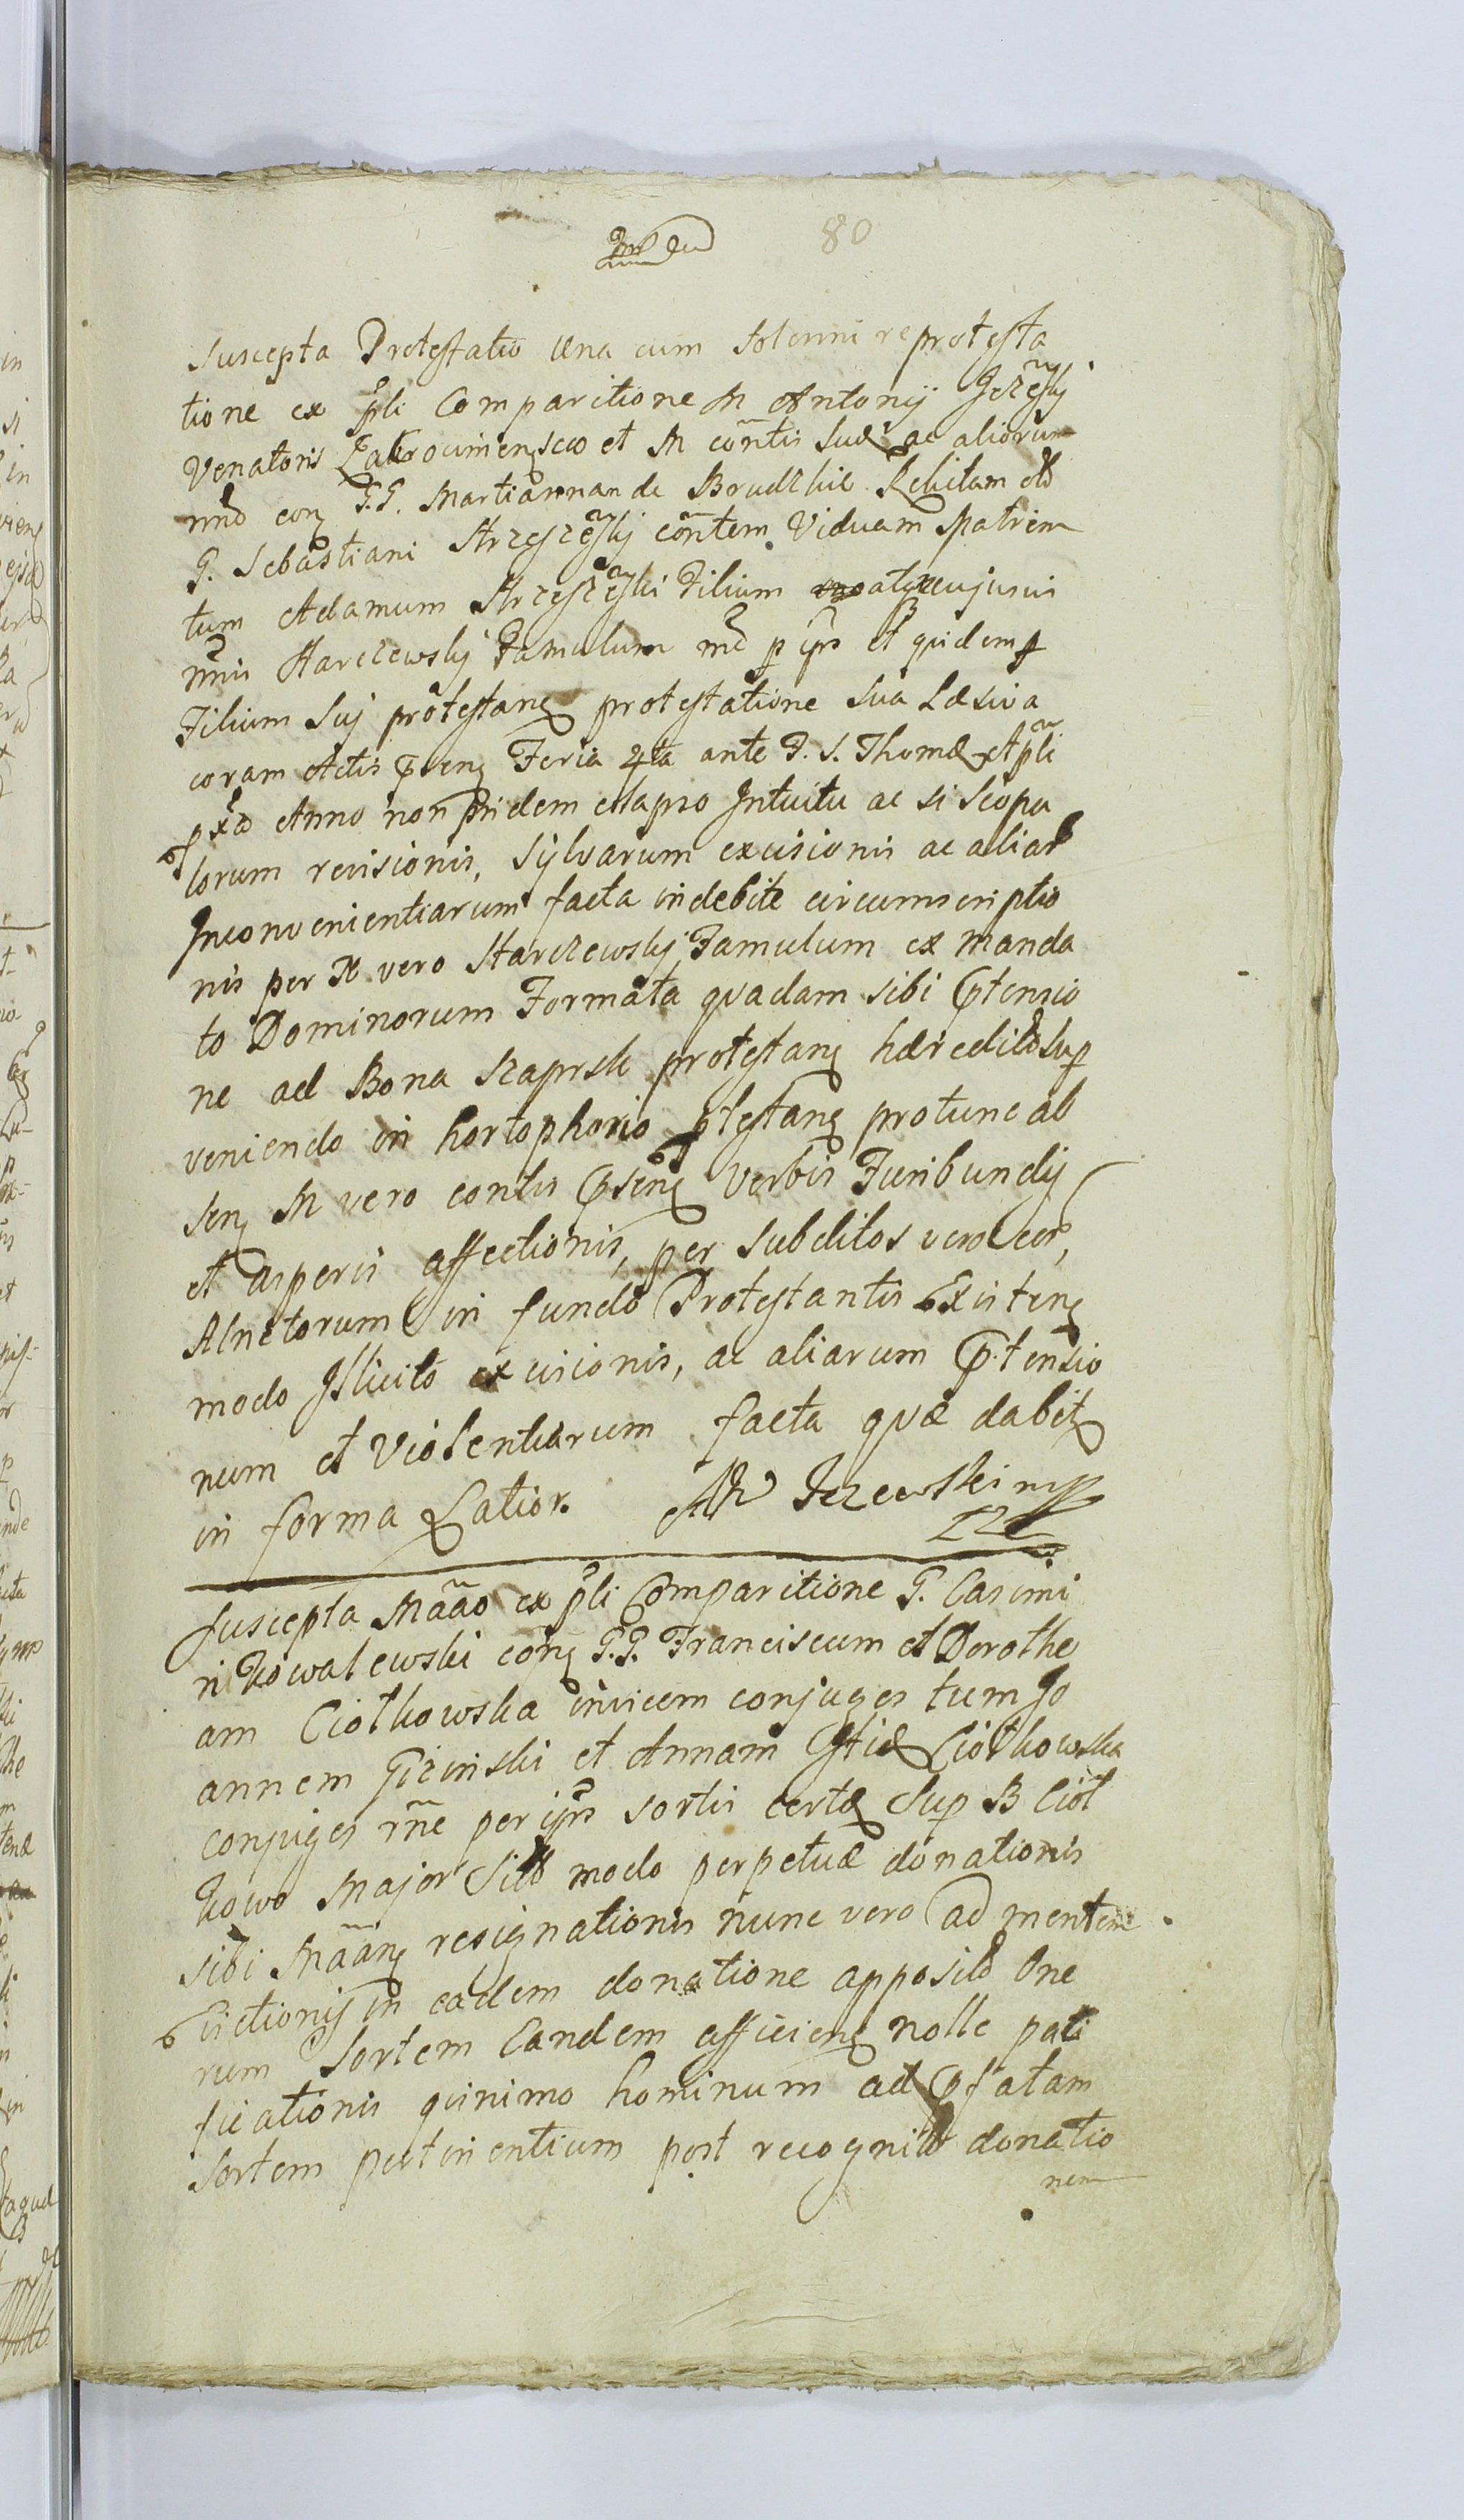 80
Suscepta Protestatio una cum solenni reprotesta
tione ex pli Comparitione M Antonij Jeze͠skj
Venatoris Zakrocimensem et M contis suæ ac aliorum
nnô con G.G. Mariannam de Brudzkie Relictam olð
G. Sebastiani Strzesze͠skj contem Viduam Matrem
tum Adamum Strzesze͠ski Filium atq cujusvis
nnis Starczewskj Famulum mê p ipś et quidem p
Filium suj protestanẽ protestatione sua Læsiva
coram Actis præsenẽ Feria 4ta ante F. S. Thomæ Apli
pxô Anno non pridem elapso Intuitu ac si Scopu
lorum revisionis, Sylvarum excisionis ac aliar
Inconvenientiarum facta indebite circumscriptio
nis per N vero Starczewskj Famulum ex manda
to Dominorum Formata quadam sibi Ptensio
ne ad Bona protestanẽ hæredito sup
veniendo in hortophorio ptestanẽ protunc ab
senẽ M vero contis Psenẽ Verbis Furibundij
et asperis affectionis, per subditos vero eor,
Alnetorum in fundo Protestantis Existenẽ
modo Illicito excisionis, ac aliarum Ptensio
num et Violentiarum facta quæ dabitẽ
in forma Latior. Jezewski mp
Suscepta Mãão ex pli Comparitione G. Casimi
ri Kowalewski conẽ G.G. Franciscum et Dorothe
am Ciołkowska invicem conjuges tum Jo
annem Gizinski et Annam Ciołkowska
conjuges rñe per ipś sortis certæ sup B Cioł
kowo Major Sitô modo perpetuæ donationis
sibi Mããnẽ resignationis nunc vero ad mentem
Evictionis in eadem donatione apposito One
rum Sortem Eandem afficienẽ nolle paci
ficationis quinimo hominum ad Pfatam
Sortem pertinentium post recognito donatio
nem